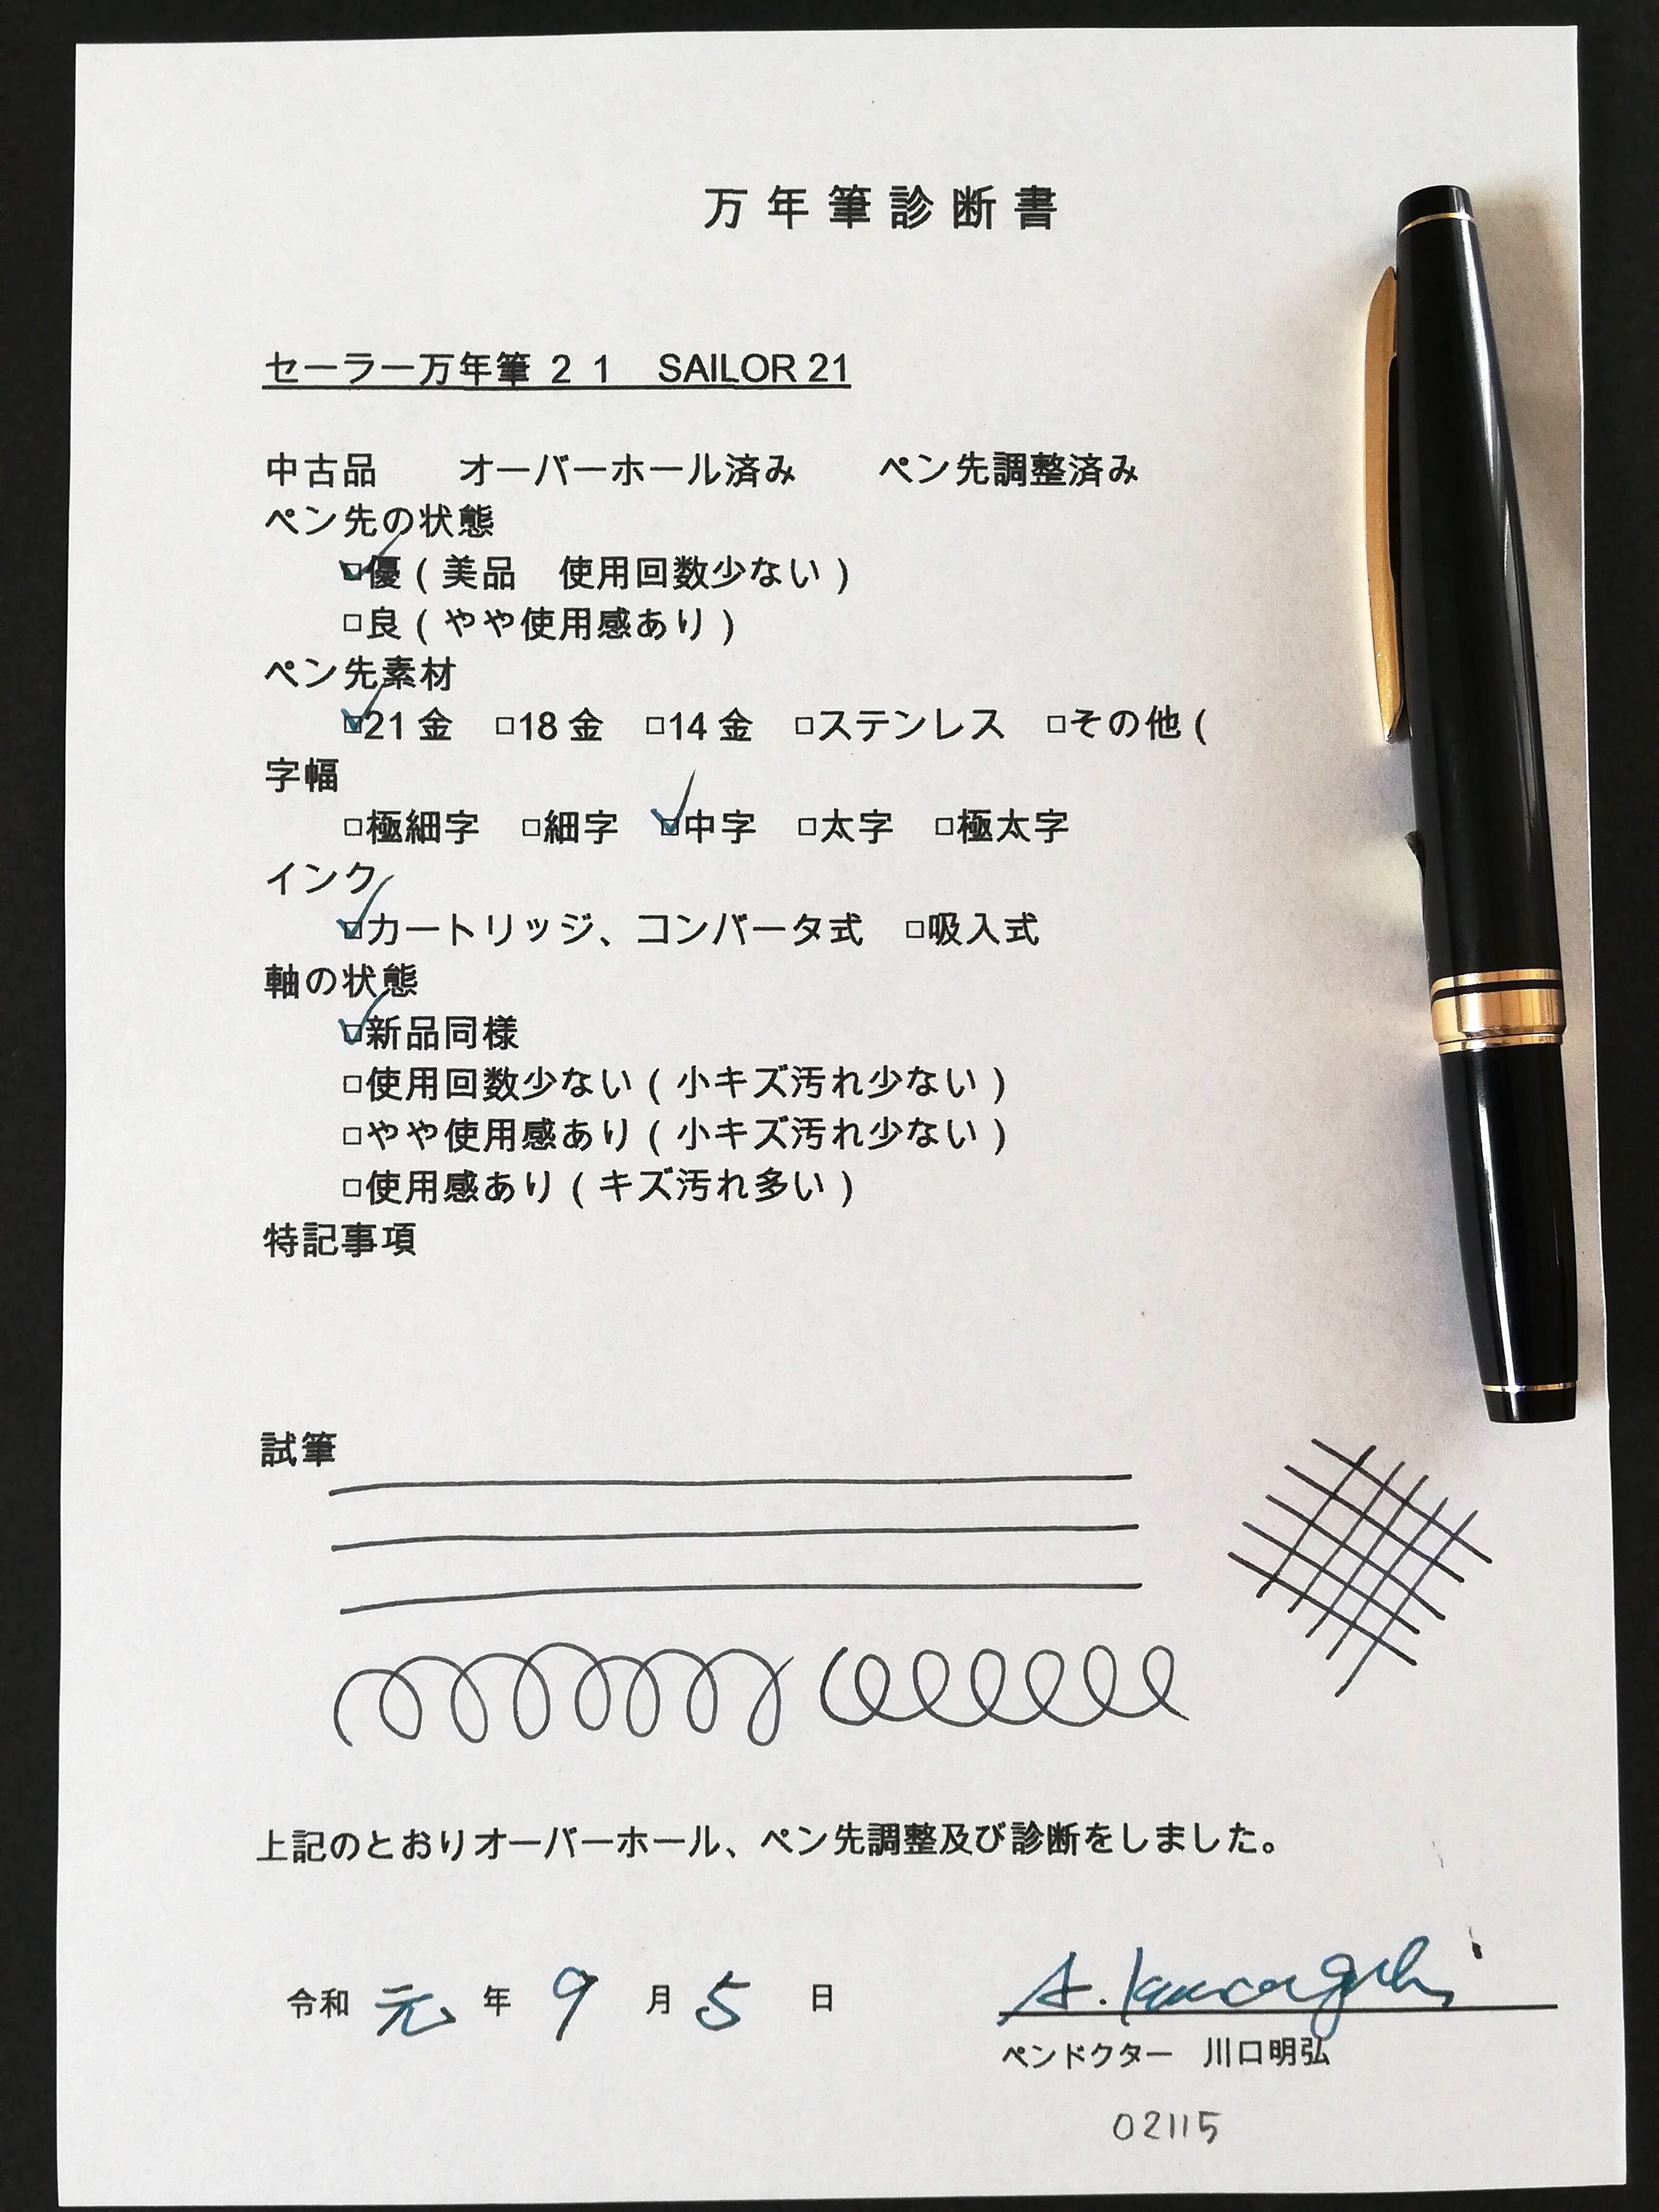 万年筆診断書
セーラー万年筆 ２１　SAILOR 21
中古品　　オーバーホール済み　　ペン先調整済み
ペン先の状態
☑優（美品　使用回数少ない）
□良（やや使用感あり）
ペン先素材
☑21 金　□18 金　□14 金　□ステンレス　□その他（
字幅
□極細字　□細字　☑中字　□太字　□極太字
インク
☑カートリッジ、コンバータ式　□吸入式
軸の状態
☑新品同様
□使用回数少ない（小キズ汚れ少ない）
□やや使用感あり（小キズ汚れ少ない）
□使用感あり（キズ汚れ多い）
特記事項
試筆
上記のとおりオーバーホール、ペン先調整及び診断をしました。
令和 元 年 9 月 5 日
A. Kawaguchi
ペンドクター　川口明弘
02115